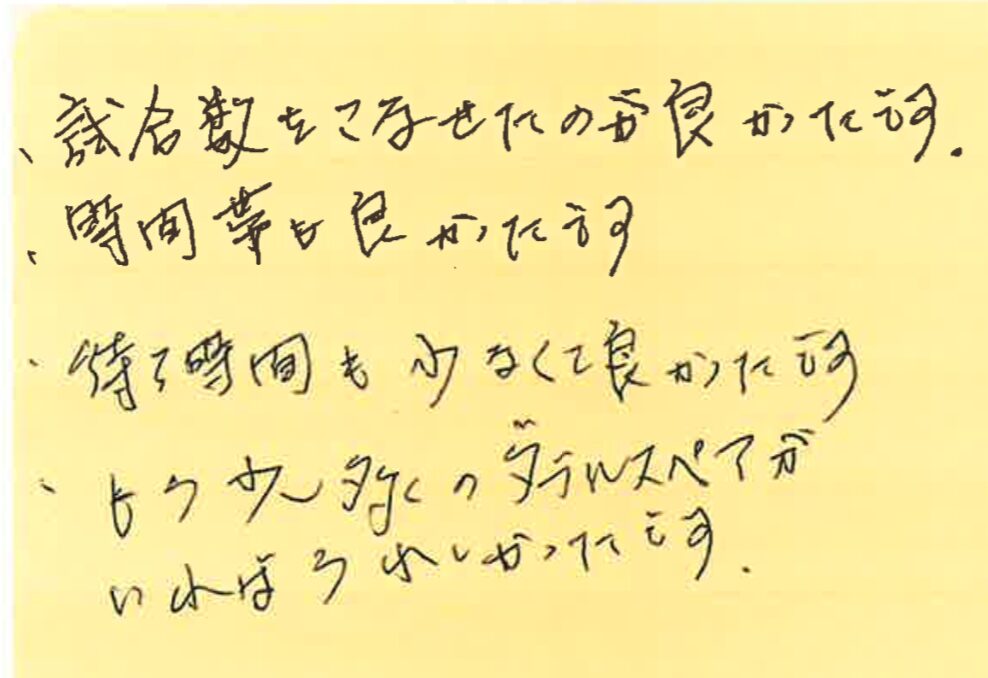 、試合数をこなせたのが良かったです.
、時間帯も良かったです
・待ち時間も少なくて良かったです
、もう少し多くのダブルスペアが
いればうれしかったです.